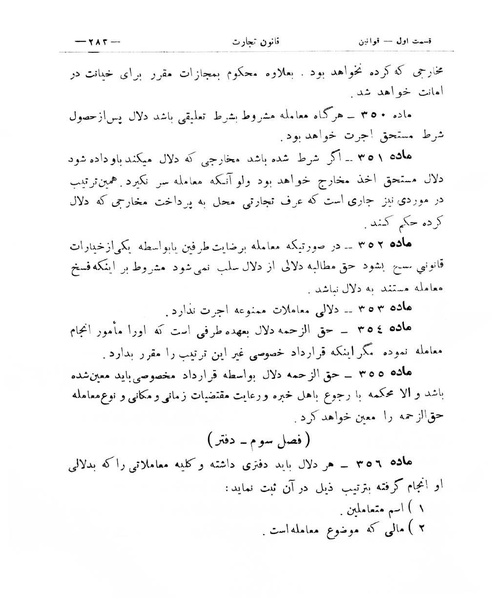 قسمت اول — قوانین
قانون تجارت
— ۲۸۳ —
مخارجی که کرده نخواهد بود . بعلاوه محکوم بمجازات مقرر برای خیانت در
امانت خواهد شد.
ماده ۳۵۰ – هرگاه معامله مشروط بشرط تعلیقی باشد دلال پس از حصول
شرط مستحق اجرت خواهد بود .
ماده ۳۵۱ – اگر شرط شده باشد مخارجی که دلال میکند باو داده شود
دلال مستحق اخذ مخارج خواهد بود ولو آنکه معامله سر نگیرد . همین ترتیب
در موردی نیز جاری است که عرف تجارتی محل به پرداخت مخارجی که دلال
کرده حکم کند .
ماده ۳۵۲ – در صورتیکه معامله برضایت طرفین یا بواسطه یکی از خیارات
قانونی فسخ بشود حق مطالبه دلالی از دلال سلب نمی شود مشروط بر اینکه فسخ
معامله مستند به دلال نباشد .
ماده ۳۵۳ – دلالی معاملات ممنوعه اجرت ندارد .
ماده ۳۵۴ – حق الزحمه دلال بعهده طرفی است که اورا مأمور انجام
معامله نموده مگر اینکه قرارداد خصوصی غیر این ترتیب را مقرر بدارد .
ماده ۳۵۵ – حق الزحمه دلال بواسطه قرارداد مخصوصی باید معین شده
باشد و الا محکمه با رجوع باهل خبره و رعایت مقتضیات زمانی و مکانی و نوع معامله
حق الزحمه را معین خواهد کرد .
( فصل سوم – دفتر )
ماده ۳۵۶ – هر دلال باید دفتری داشته و کلیه معاملاتی را که بدلالی
او انجام گرفته بترتیب ذیل در آن ثبت نماید :
۱ ) اسم متعاملین .
۲ ) مالی که موضوع معامله است .